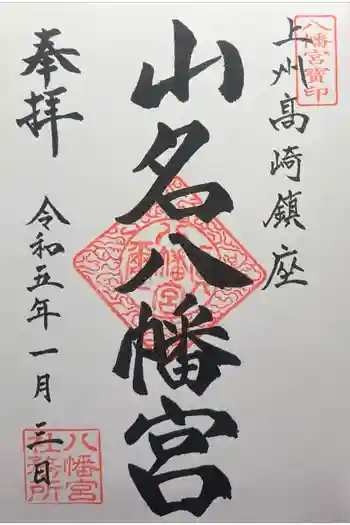 上州高崎鎮座
八幡宮寶印
山名八幡宮
奉拝
令和五年一月三日
八幡宮
社務所